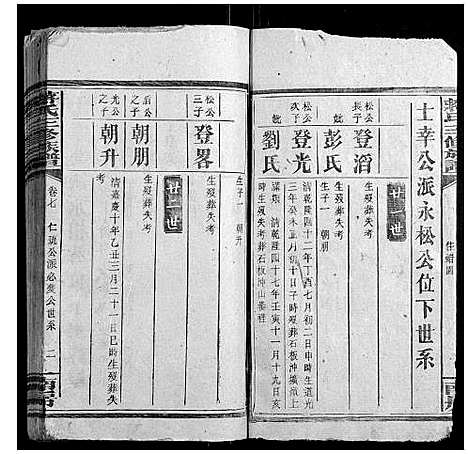 士幸公派永松公位下世系
廿一世
松公長子
登滔
生歿葬失考
娶
彭氏
生歿葬失考
生子一 朝朋
松公次子
登光
清乾隆四十二年丁酉七月初二日申時生道光
三年癸未五月初十日子時歿葬石板沖
娶
劉氏
清乾隆四十七年壬寅十一月十九日亥
時生歿失考葬石板沖山
生子一 朝升
松公三子
登畧
生歿葬失考
廿二世
滔公之子
朝朋
生歿葬失考
光公之子
朝升
清嘉慶十年乙丑三月二十一日巳時生歿葬失
考
氏三修族譜
卷七
仁琉公派必奕公世系
二